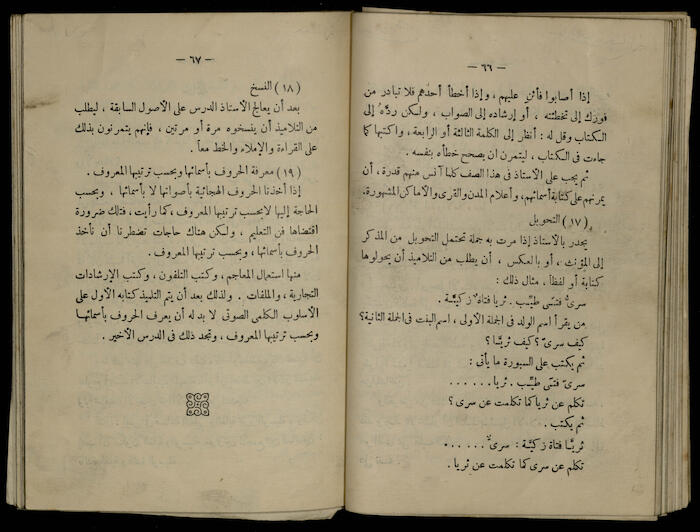 — ٦٦ —
إذا أصابوا فأثنِ عليهم ، وإذا أخطأ أحدهم فلا تبادر من
فورك إلى تخطئته ، أو إرشاده إلى الصواب ، ولكن ردَّهُ إلى
الكتاب وقل له : أنظر إلى الكلمة الثالثة أو الرابعة ، واكتبها كما
جاءت فى الكتاب ، ليتمرن ان يصحح خطأه بنفسه .
ثم يجب على الأستاذ فى هذا الصف كلما آنس منهم قدرة ، أن
يمرنهم على كتابة أسمائهم ، وأعلام المدن والقرى والأماكن المشهورة .
( ١٧ ) التحويل
يجدر بالأستاذ إذا مرت به جملة تحتمل التحويل من المذكر
إلى المؤنث ، أو بالعكس ، أن يطلب من التلاميذ أن يحولوها
كتابة أو لفظاً ، مثال ذلك :
سرىٌّ فتىً طيِّب . ثريا فتاةٌ زكيَّة .
من يقرأ اسم الولد فى الجملة الأولى ، اسم البنت فى الجملة الثانية ؟
كيف سرىّ ؟ كيف ثريَّا ؟
ثم يكتب على السبورة ما يأتى :
سرىّ فتىً طيِّب . ثريا . . . . . .
تكلم عن ثريا كما تكلمت عن سرى ؟
ثم يكتب .
ثريَّا فتاة زكيَّة : سرىّ . . . . . .
تكلم عن سرى كما تكلمت عن ثريا .
— ٦٧ —
( ١٨ ) النسخ
بعد أن يعالج الأستاذ الدرس على الأصول السابقة ، ليطلب
من التلاميذ أن ينسخوه مرة أو مرتين ، فإنهم يتمرنون بذلك
على القراءة والإملاء والخط معاً .
( ١٩ ) معرفة الحروف بأسمائها وبحسب ترتيبها المعروف .
إذا أخذنا الحروف الهجائية بأصواتها لا بأسمائها ، وبحسب
الحاجة إليها لا بحسب ترتيبها المعروف ، كما رأيت ، فتلك ضرورة
اقتضاها فن التعليم ، ولكن هناك حاجات تضطرنا أن نأخذ
الحروف بأسمائها ، وبحسب ترتيبها المعروف .
منها استعمال المعاجم ، وكتب التلفون ، وكتب الإرشادات
التجارية ، والملفات . ولذلك بعد أن يتم التلميذ كتابه الأول على
الأسلوب الكلمى الصوتى لا بد له أن يعرف الحروف بأسمائها
وبحسب ترتيبها المعروف ، وتجد ذلك فى الدرس الأخير .